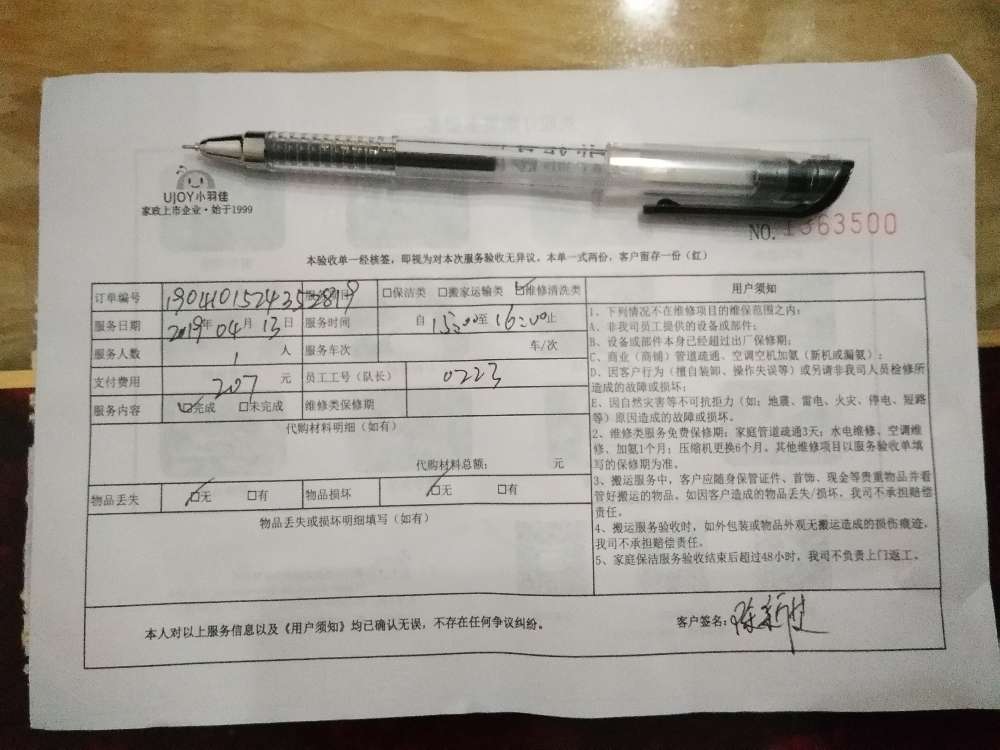 UJOY小羽佳
家政上市企业·始于1999
NO. 1363500
本验收单一经核签，即视为对本次服务验收无异议。本单一式两份，客户留存一份（红）
订单编号 □保洁类 □搬家运输类 ☑维修清洗类
服务日期 2019年04月13日 服务时间 自 15:00至 16:00止
服务人数 1 人 服务车次 车/次
支付费用 207 元 员工工号（队长） 0223
服务内容 ☑完成 □未完成 维修类保修期
代购材料明细（如有）
代购材料总额： 元
物品丢失 ☑无 □有 物品损坏 ☑无 □有
物品丢失或损坏明细填写（如有）
用户须知
1、下列情况不在维修项目的维保范围之内：
A、非我司员工提供的设备或部件；
B、设备或部件本身已经超过出厂保修期；
C、商业（商铺）管道疏通、空调空机加氨（新机或漏氨）；
D、因客户行为（擅自装卸、操作失误等）或另请非我司人员检修所
造成的故障或损坏；
E、因自然灾害等不可抗拒力（如：地震、雷电、火灾、停电、短路
等）原因造成的故障或损坏。
2、维修类服务免费保修期：家庭管道疏通3天；水电维修、空调维
修、加氨1个月；压缩机更换6个月。其他维修项目以服务验收单填
写的保修期为准。
3、搬运服务中，客户应随身保管证件、首饰、现金等贵重物品并看
管好搬运的物品。如因客户造成的物品丢失/损坏，我司不承担赔偿
责任。
4、搬运服务验收时，如外包装或物品外观无搬运造成的损伤痕迹，
我司不承担赔偿责任。
5、家庭保洁服务验收结束后超过48小时，我司不负责上门返工。
本人对以上服务信息以及《用户须知》均已确认无误，不存在任何争议纠纷。
客户签名：